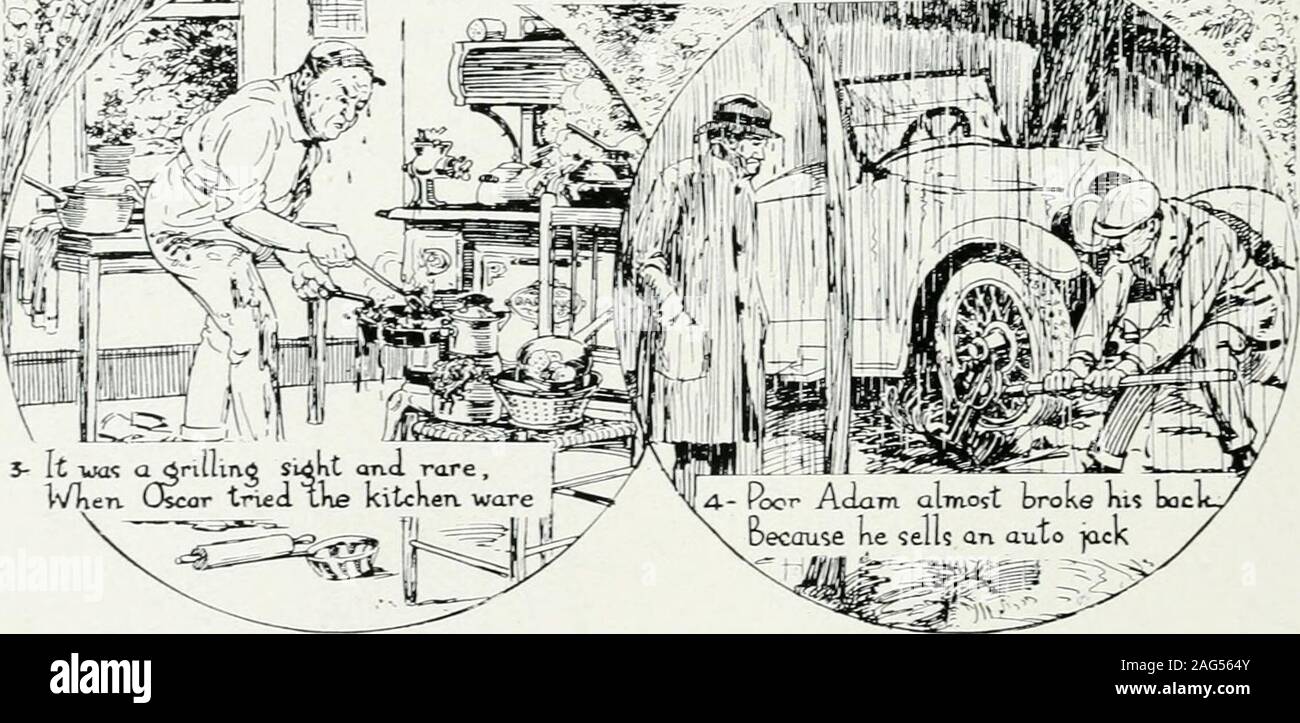 3- It was a grilling sight and rare,
When Oscar tried the kitchen ware
4- Poor Adam almost broke his back
Because he sells an auto jack
alamy
Image ID: 2AG564Y
www.alamy.com